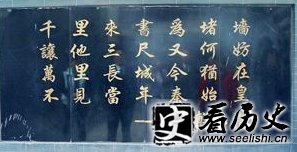 千里來書為堵墙
讓他三尺又何妨
萬里長城今猶在
不見當年秦始皇
史
看历史
www.seelishi.cn